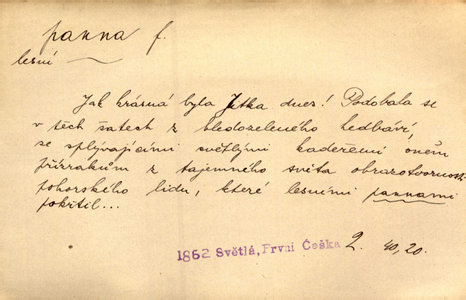 panna f.
lesní ~
Jak krásná byla Jitka dnes! Podobala se
v těch šatech z bledozeleného hedbáví,
se splývajícími světlými kadeřemi oněm
přízrakům z tajemného světa obrazotvornosti
pohorského lidu, které lesními pannami
pokřtil...
1862 Světlá, První Češka 2. 40, 20.